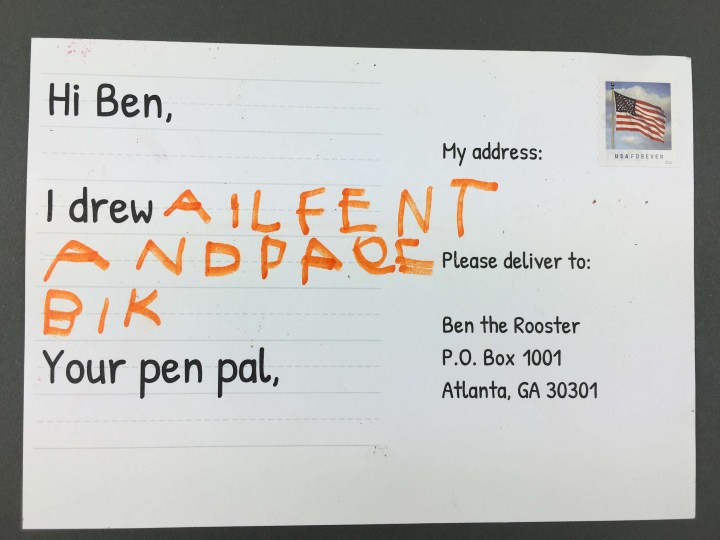 Hi Ben,
I drew A ILFENT
A NDPAQE
BIK
Your pen pal,
My address:
Please deliver to:
Ben the Rooster
P.O. Box 1001
Atlanta, GA 30301
USA FOREVER